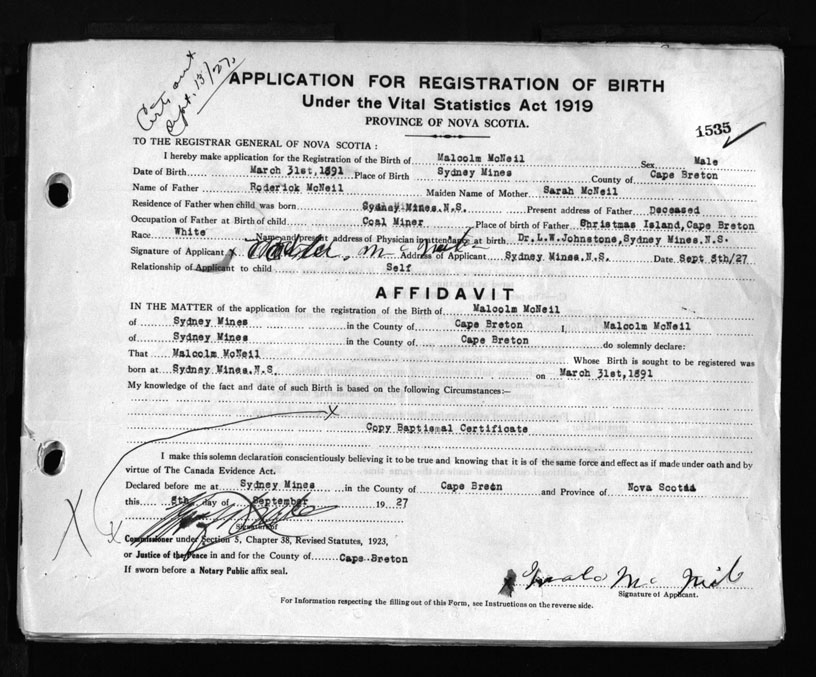 Sept. 13/27.
APPLICATION FOR REGISTRATION OF BIRTH
Under the Vital Statistics Act 1919
PROVINCE OF NOVA SCOTIA.
1535
TO THE REGISTRAR GENERAL OF NOVA SCOTIA :
I hereby make application for the Registration of the Birth of Malcolm McNeil Sex Male
Date of Birth March 31st,1891 Place of Birth Sydney Mines County of Cape Breton
Name of Father Roderick McNeil Maiden Name of Mother Sarah McNeil
Residence of Father when child was born Sydney Mines.N.S. Present address of Father Deceased
Occupation of Father at Birth of child Coal Miner Place of birth of Father Christmas Island,Cape Breton
Race. White Name and present address of Physician in attendance at birth Dr.L.W.Johnstone,Sydney Mines.N.S.
Signature of Applicant x Mc Neil Address of Applicant Sydney Mines.N.S. Date Sept 8th/27
Relationship of Applicant to child Self
AFFIDAVIT
IN THE MATTER of the application for the registration of the Birth of Malcolm McNeil
of Sydney Mines in the County of Cape Breton I, Malcolm McNeil
of Sydney Mines in the County of Cape Breton do solemnly declare:
That Malcolm McNeil Whose Birth is sought to be registered was
born at Sydney Mines.N.S. on March 31st,1891
My knowledge of the fact and date of such Birth is based on the following Circumstances:—
x
Copy Baptismal Certificate
I make this solemn declaration conscientiously believing it to be true and knowing that it is of the same force and effect as if made under oath and by
virtue of The Canada Evidence Act.
Declared before me at Sydney Mines in the County of Cape Breton and Province of Nova Scotia
this 8th day of September 19 27
Signature of
X x Commissioner under Section 5, Chapter 38, Revised Statutes, 1923,
or Justice of the Peace in and for the County of Cape Breton
If sworn before a Notary Public affix seal.
x Mc Neil
Signature of Applicant.
For Information respecting the filling out of this Form, see Instructions on the reverse side.